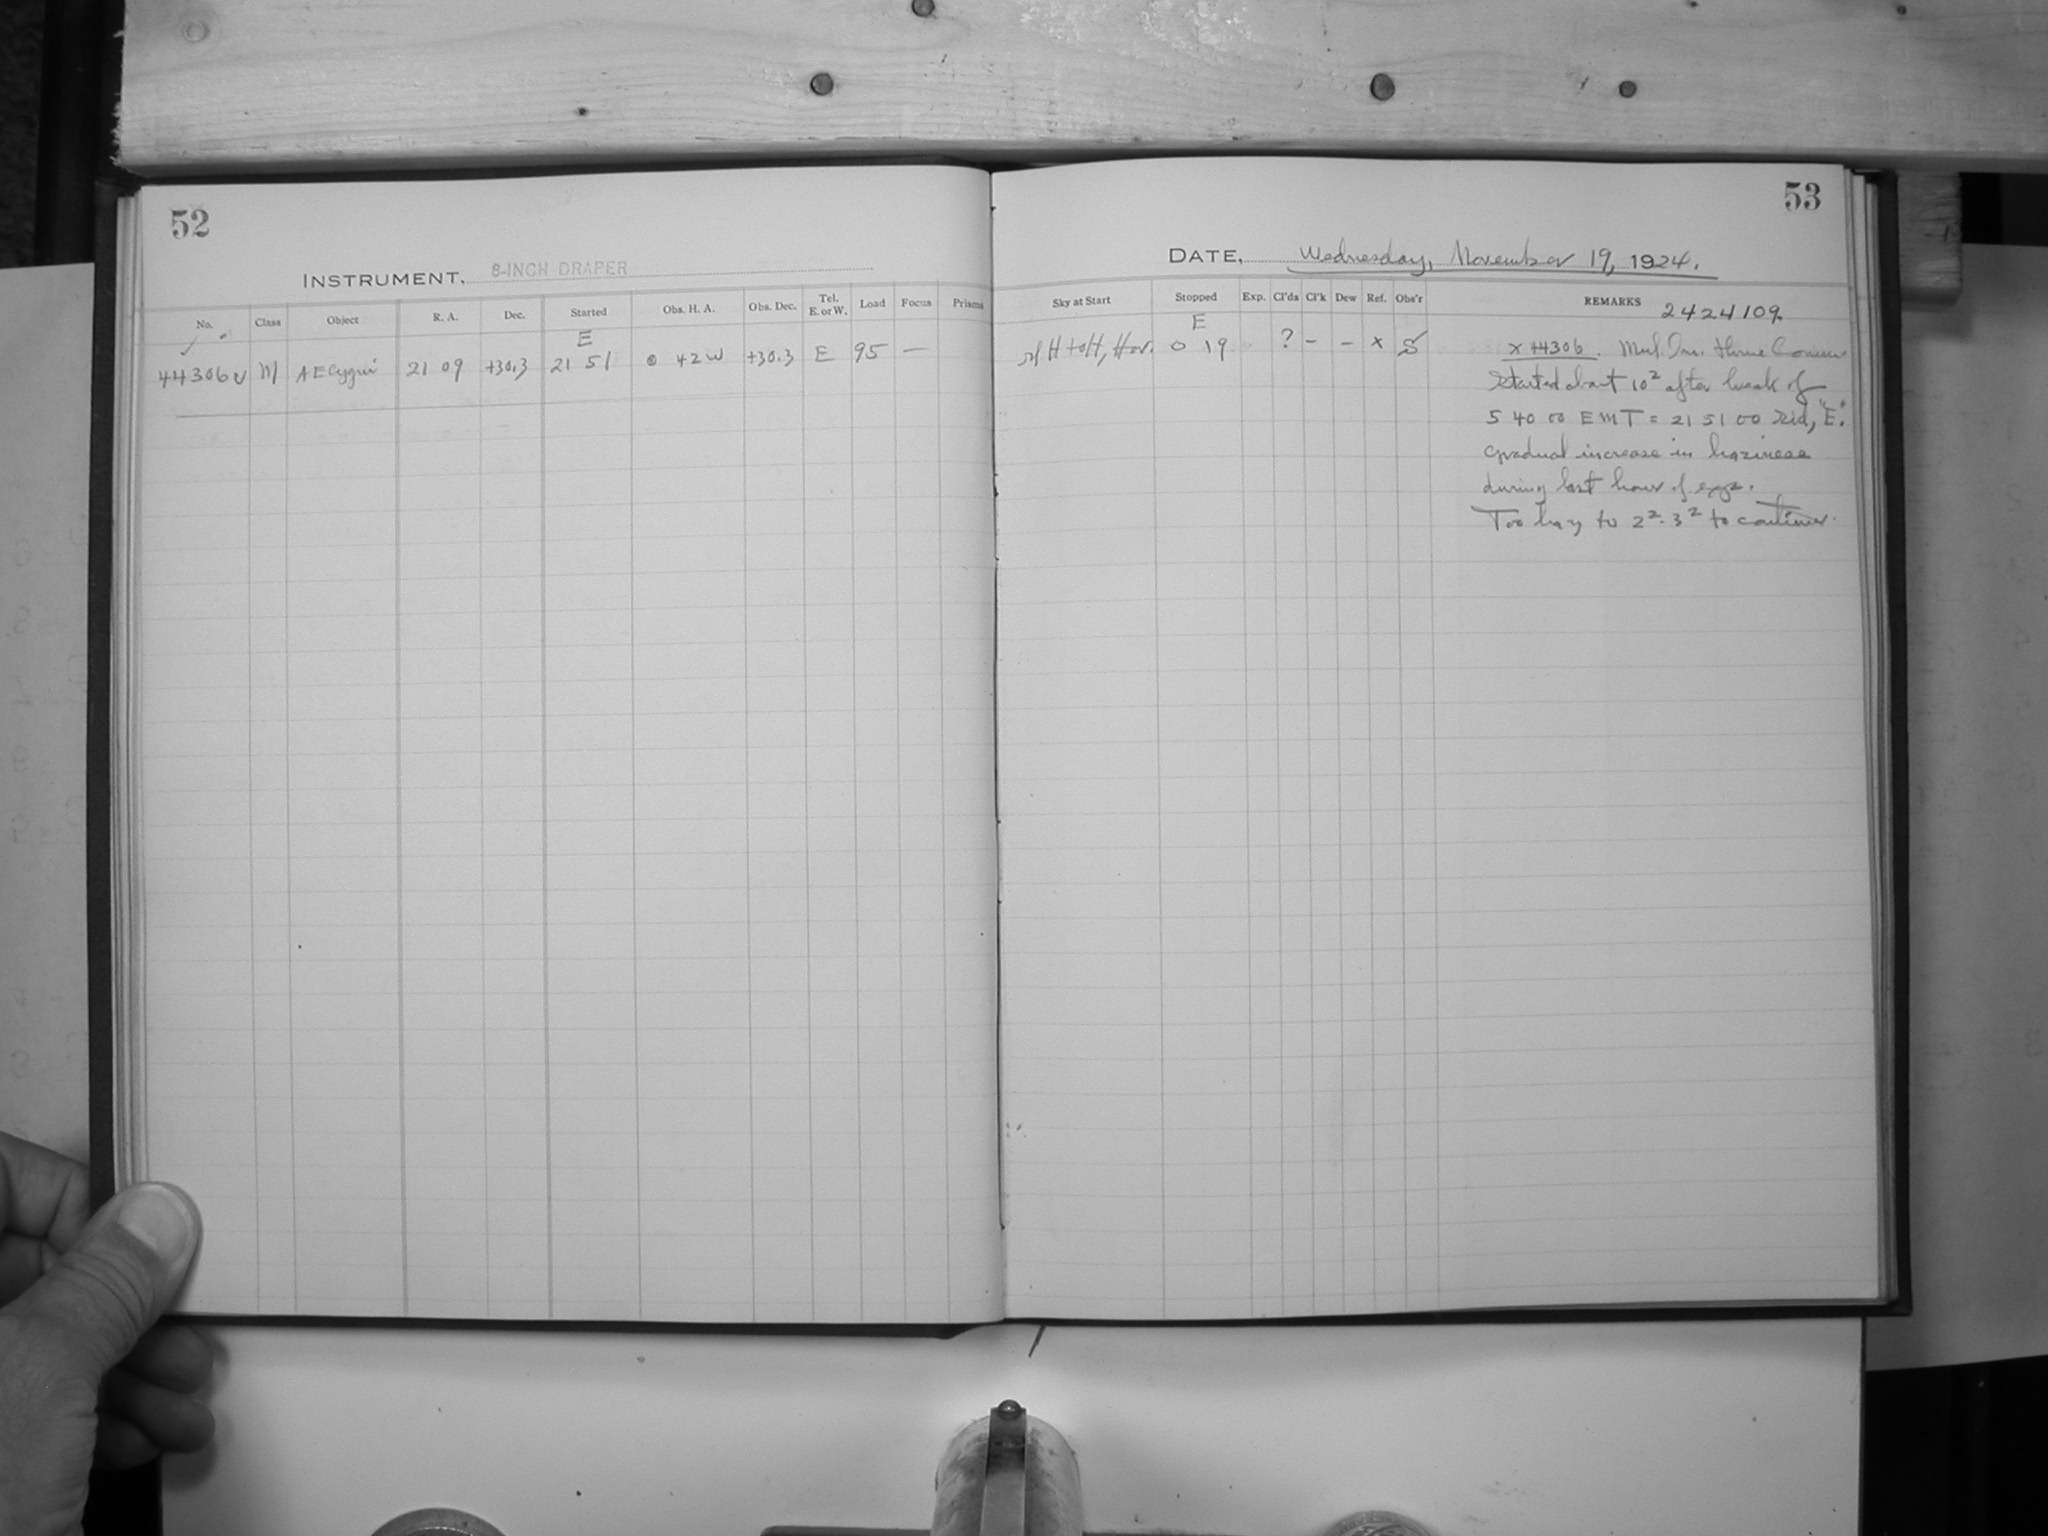 52
INSTRUMENT, 8-INCH DRAPER
No. Class Object R. A. Dec. Started Obs. H. A. Obs. Dec. Tel. E. or W. Load Focus Prisms
E
44306 M AE Cygni 21 09 +30.3 21 51 0 42 W +30.3 E 95 —
53
DATE, Wednesday, November 19, 1924.
Sky at Start Stopped Exp. Cl'ds Cl'k Dew Ref. Obs'r REMARKS
2424109
E
H to H, Hor. 0 19 ? – – x S
x 44306.
Started about 10² after break of
5 40 00 EMT = 21 51 00 Sid, "E."
Gradual increase in haziness
during last hour of exp.
Too hazy to 2². 3² to continue.